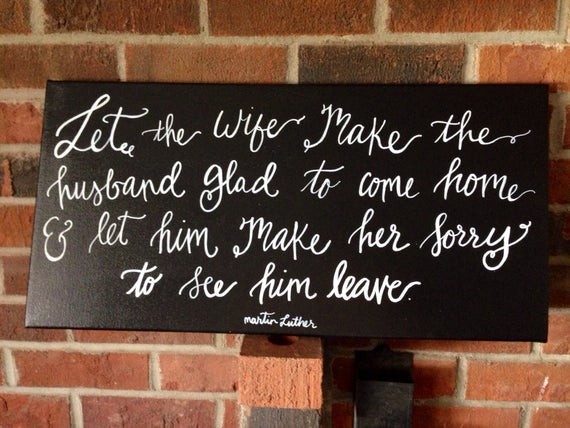 Let the wife Make the
husband glad to come home
& let him Make her sorry
to see him leave.
martin Luther